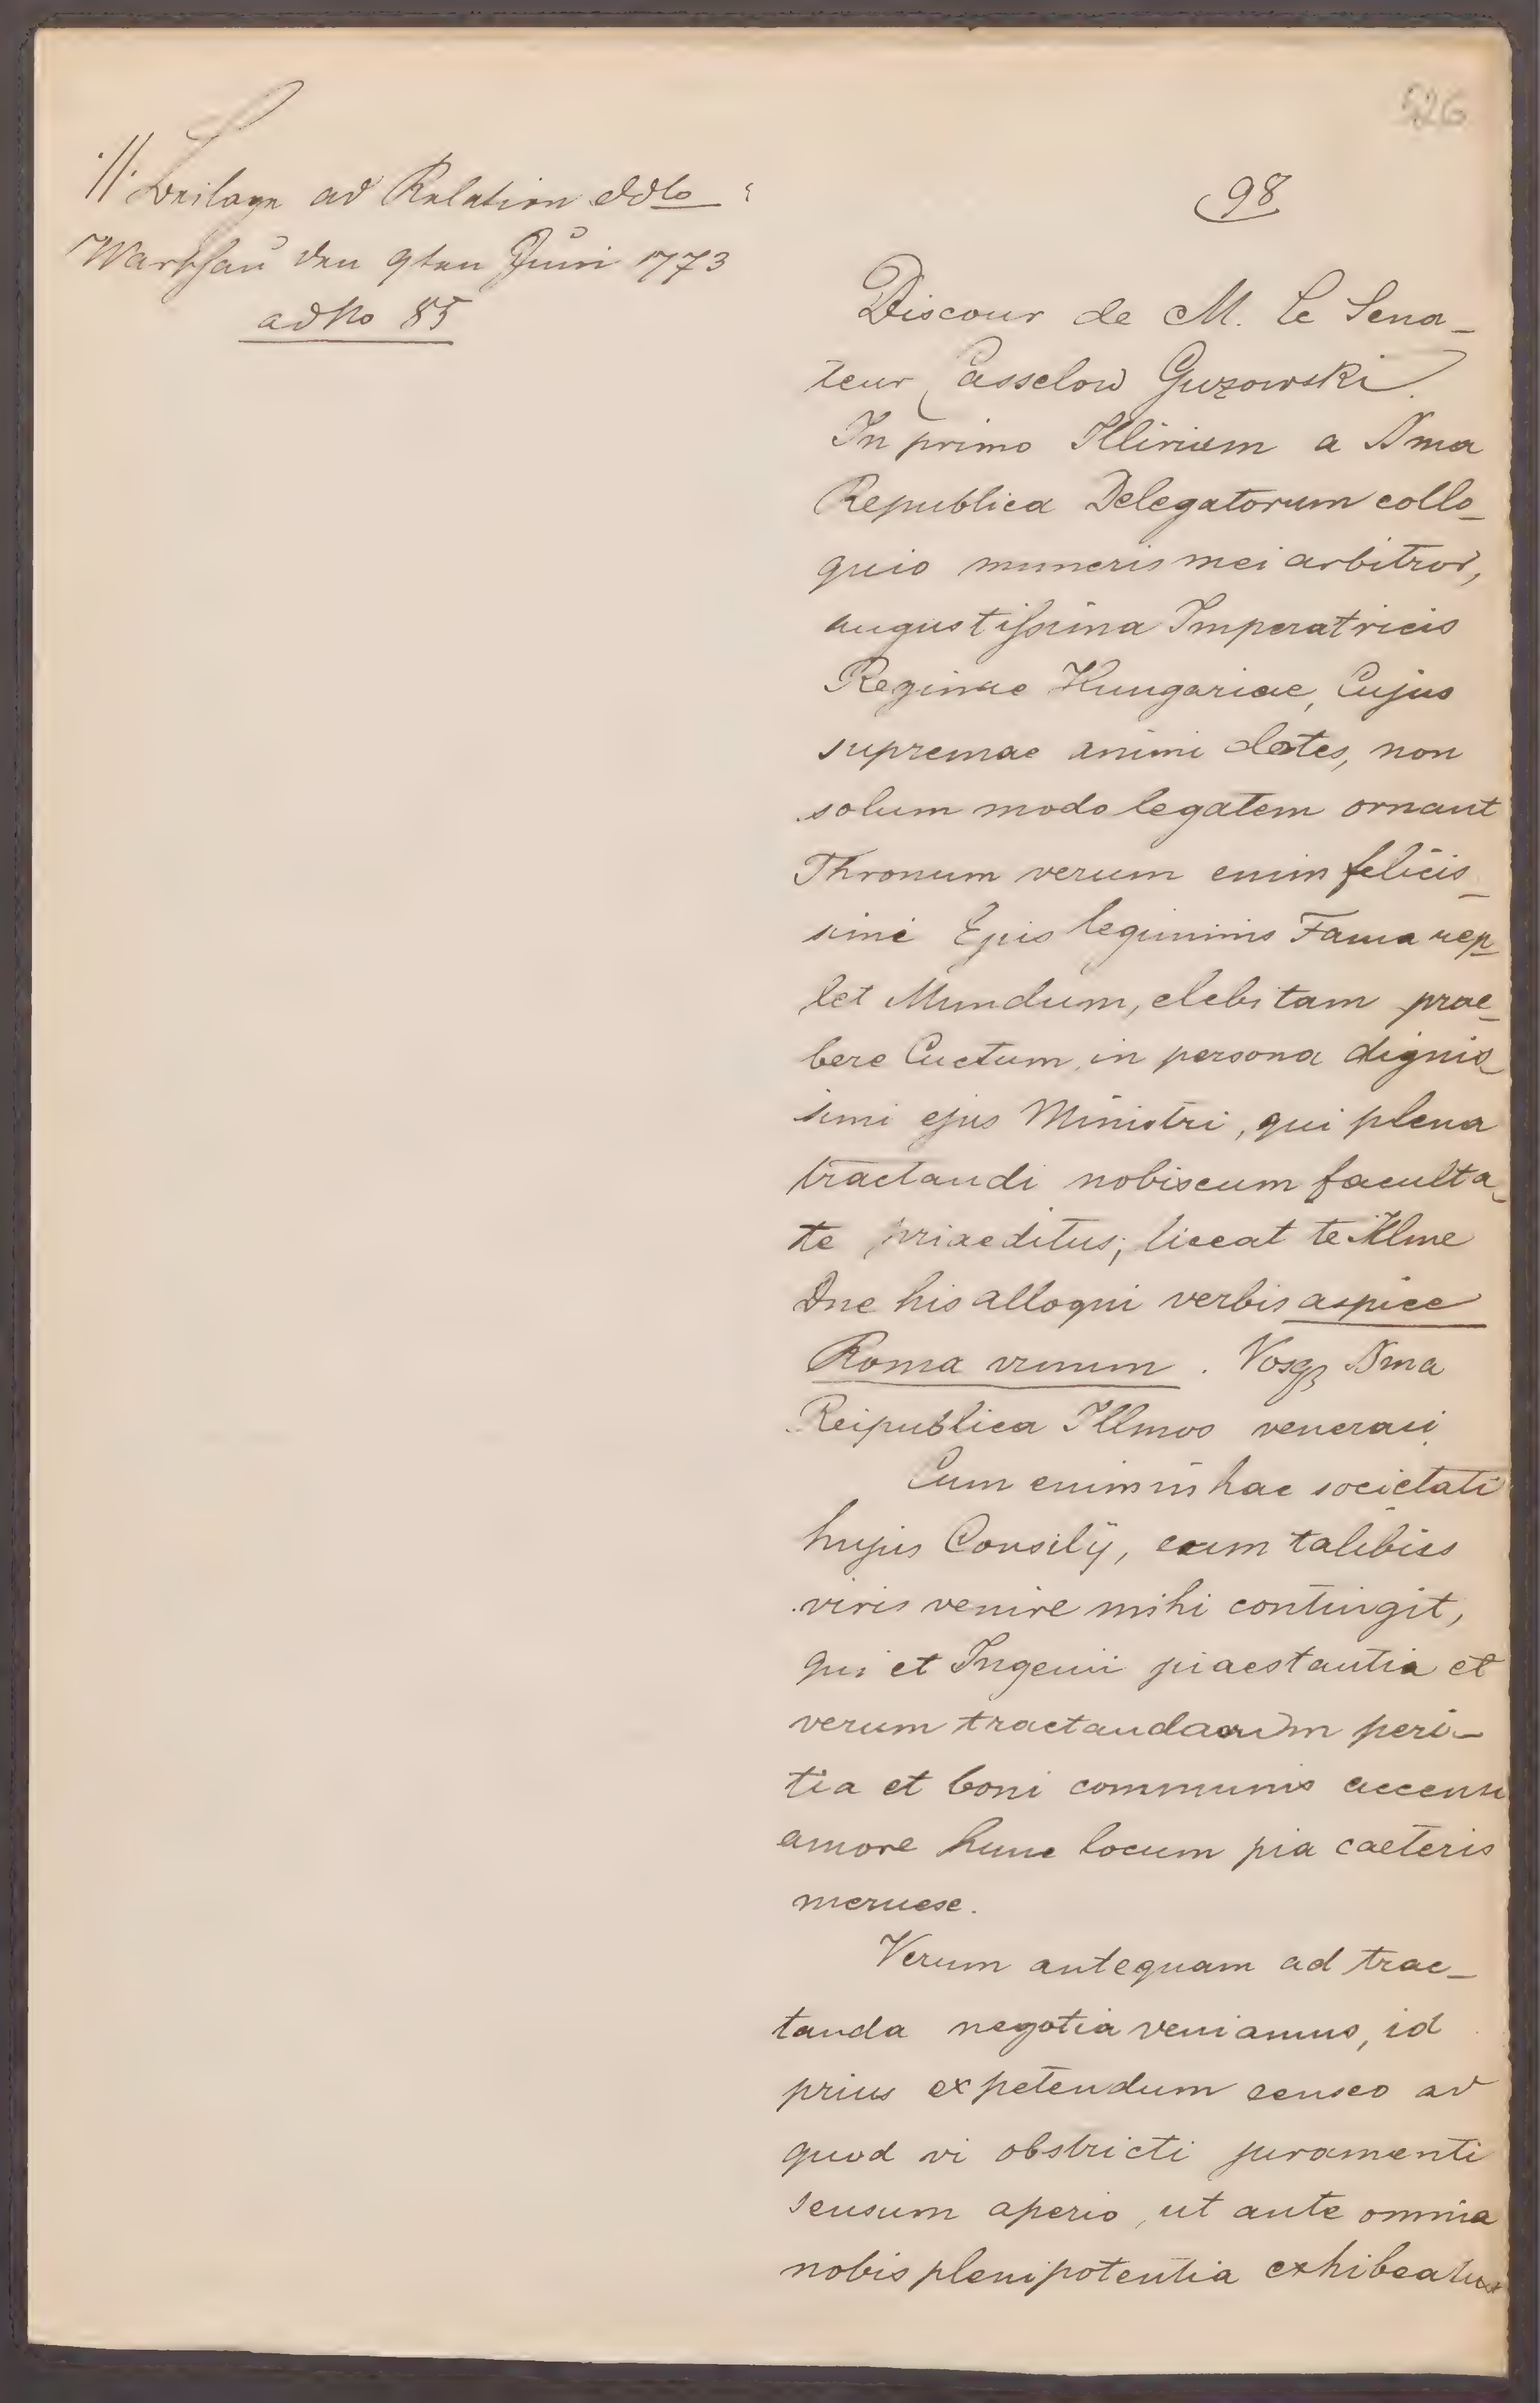 526
·//· Beilage ad Relation ddto
Warschau den 9ten Juni 1773
ad No 85
98
Discour de M. le Sena-
teur Casselow Guzowski.
In primo Illiriem a Sma
Republica Delegatorum collo-
quio muneris mei arbitror,
augustissima Imperatricis
Reginae Hungariae, Cujus
supremae animi dotes, non
solum modo legatem ornant
Thronum verum enim felicis-
simi Ejus leguminis Fama rep-
let Mundum, debitam prae-
bere Cuctum, in persona dignis-
simi ejus Ministri, qui plena
tractandi nobiscum faculta-
te priaeditus; liceat te Illme
Dne his alloqui verbis aspice
Roma virum. Vosq3 Sma
Reipublica Illmos veneraii
Cum enim in hac societati
hujus Consilÿ, cum talibus
viris venire mihi contingit,
qui et Ingenii piaestantia et
verum tractandarum peri-
tia et boni communis accensi
amore hunc locum pia caeteris
meruese.
Verum antequam ad trac-
tanda negotia veniamus, id
prius expetendum censeo ad
quod vi obstricti juramenti
sensum aperio, ut ante omnia
nobis plenipotentia exhibeatur